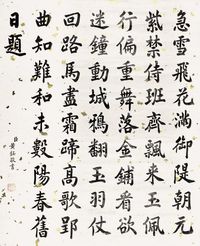 急雪飛花滿御隄朝元
紫禁侍班齊飄來玉佩
行偏重舞落金鋪看欲
迷鐘動城鴉翻玉羽仗
回路馬盡霜蹄高歌郢
曲知難和未數陽春舊
日題
臣黃敬書